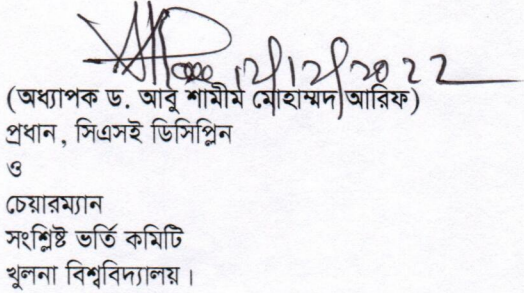 12/12/2022
(অধ্যাপক ড. আবু শামীম মোহাম্মদ আরিফ)
প্রধান, সিএসই ডিসিপ্লিন
ও
চেয়ারম্যান
সংশ্লিষ্ট ভর্তি কমিটি
খুলনা বিশ্ববিদ্যালয়।